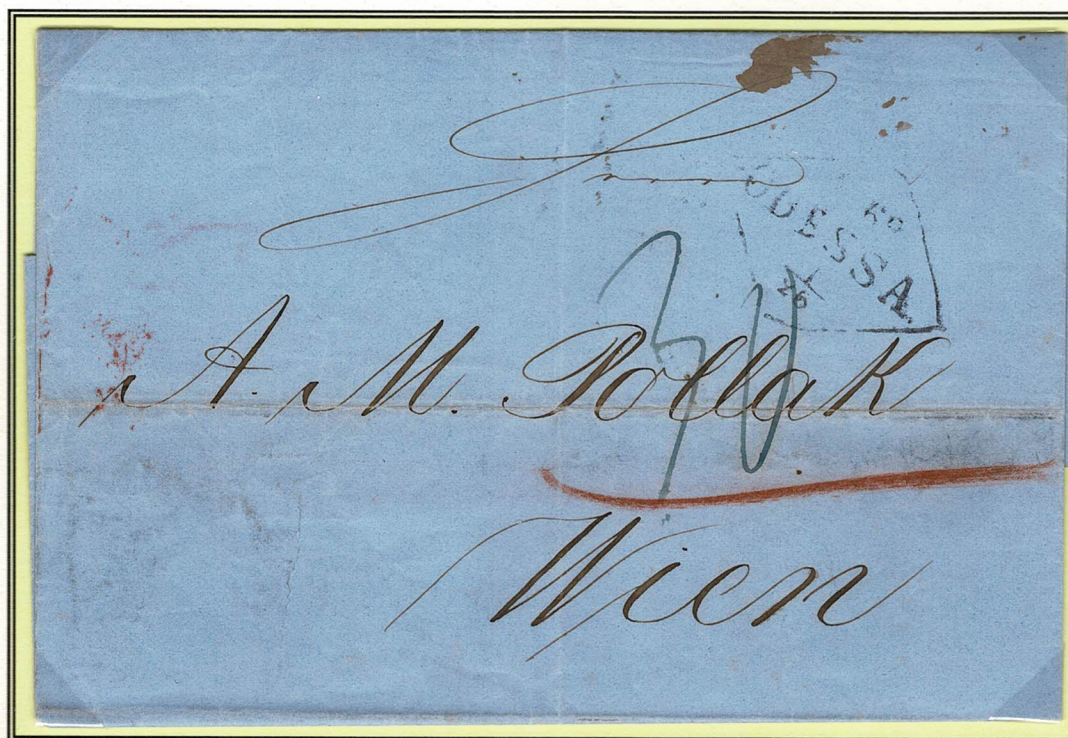 ODESSA.
30
A. M. Pollak
Wien